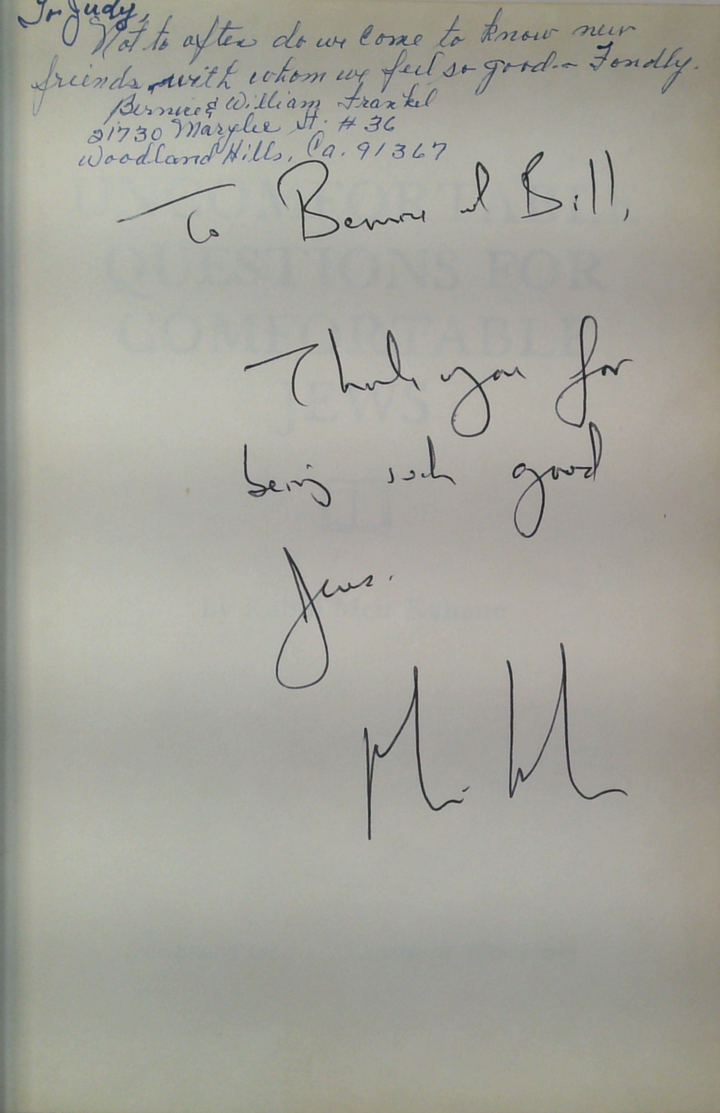 To Judy,
Not to often do we come to know new
friends with whom we feel so good – Fondly.
Bernice & William Frankel
21730 Marylee St. #36
Woodland Hills, Ca. 91367
To Bernice and Bill,
Thank you for
being such good
Jews.
UNCOMFORTABLE
QUESTIONS FOR
COMFORTABLE
JEWS
By Rabbi Meir Kahane